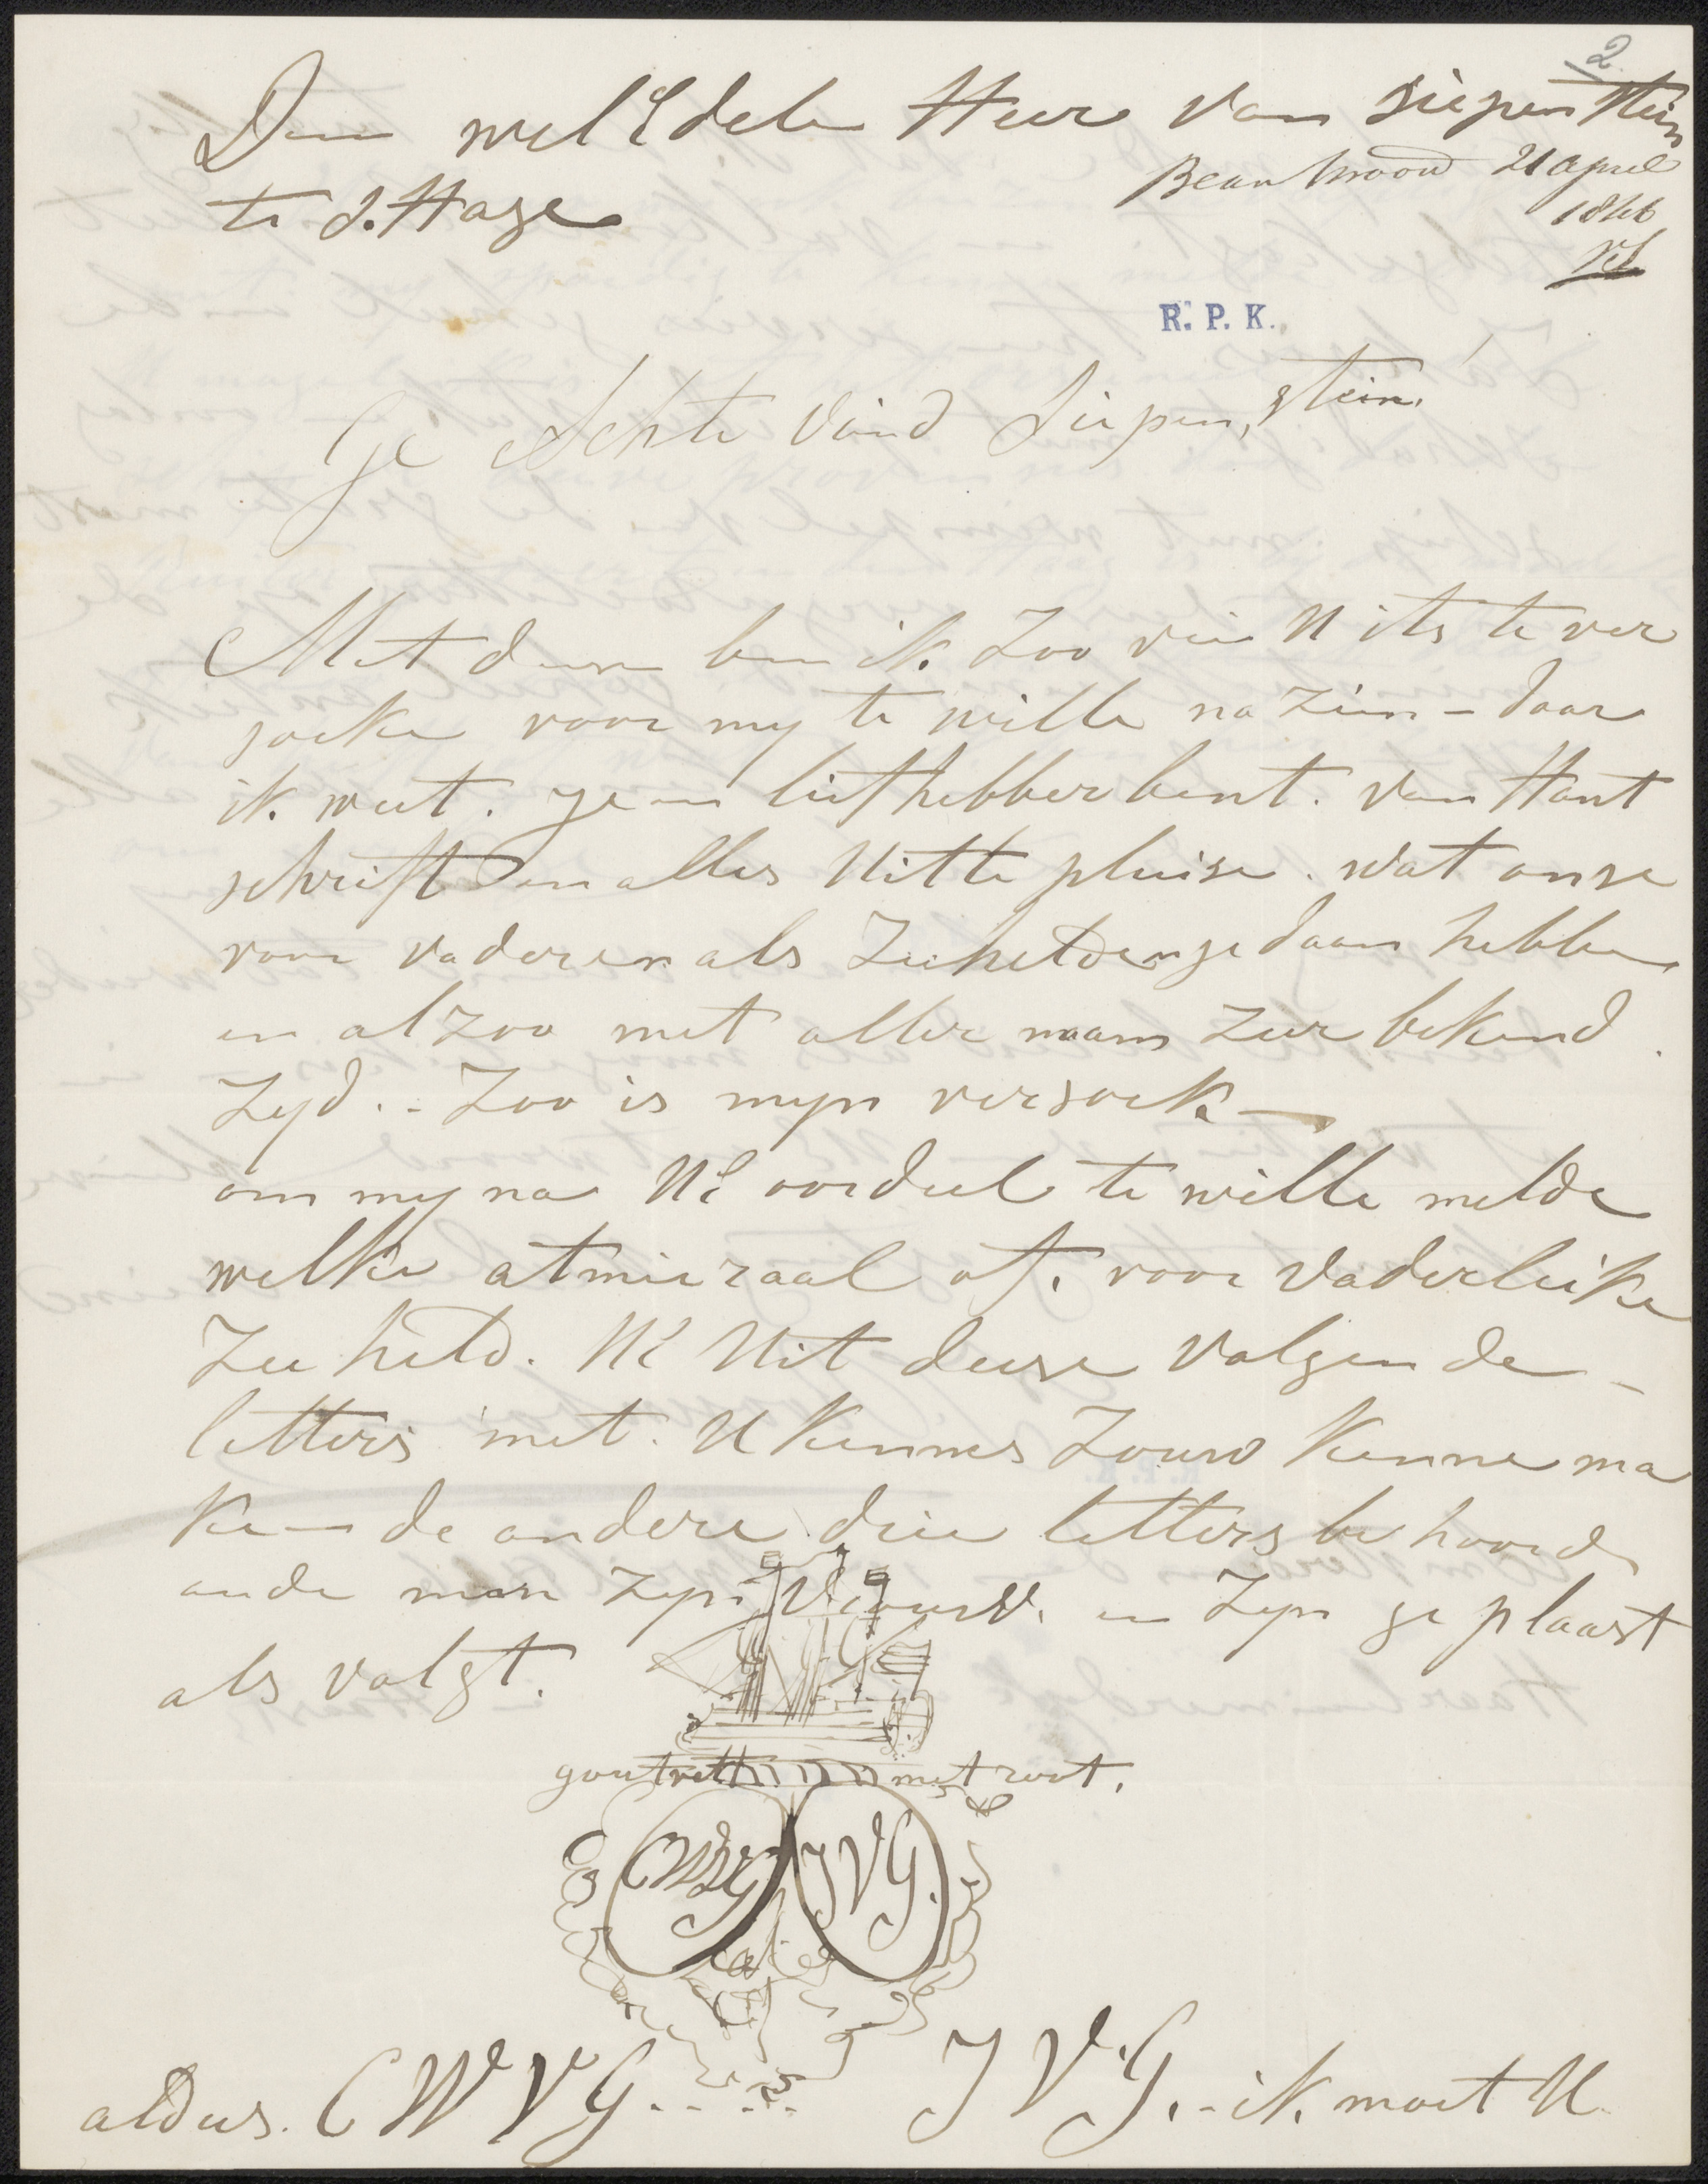 2
Den wel Edele Heer van Siepenstein
Beantwoord 21 april
te s. Hage
R. P. K.
Ge Achte vrind Siepen,stein!
Met desen ben ik Zoo vrie U its te ver
soeke voor my te wille na Zien - daar
ik weet. je een liefhebber bent. van Hant
schrift en alles Uit te pluise. wat onse
voor vaderen als Zeehelden gedaan hebben
en al zoo met aller naam zeer bekend
Zyd. - Zoo is myn versoek -
om my na UE oordeel te wille melde
welke atmieraal of. voor vaderleike
Zee held. UE Uit deese volgende -
letters met. U kennes Zouw kenne ma
ke - de andere drie letters be hoorde
an de man Zyn Vrouw. en Zyn ge plaast
als volgt.
gout met root.
CWVG JVG.
aldus. CWVG.... JVG. - ik moet U